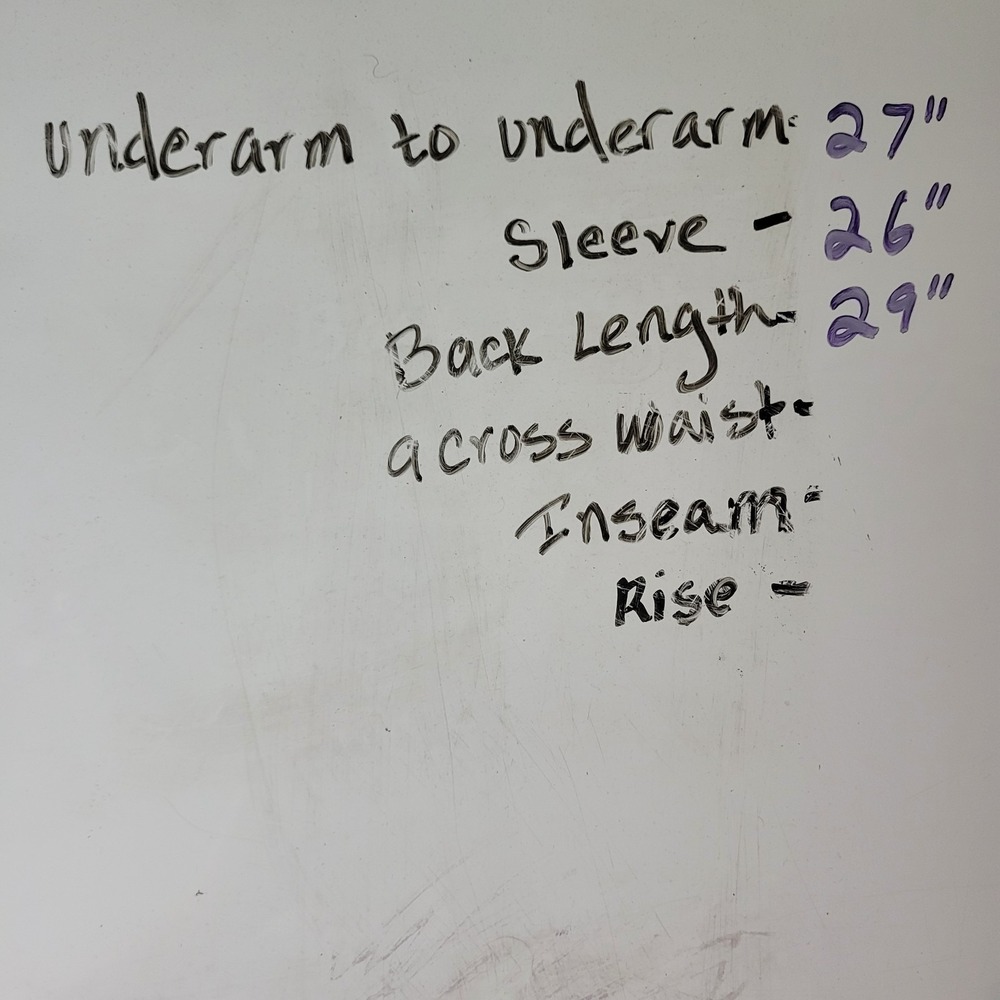 underarm to underarm- 27"
Sleeve - 26"
Back Length- 29"
across waist-
Inseam-
Rise -